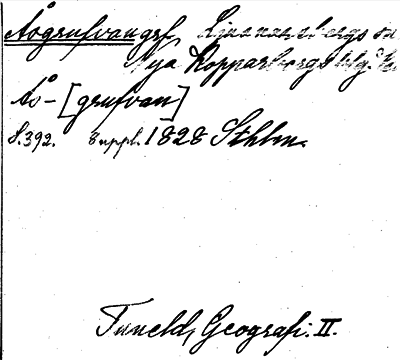 Åogrufvan grf. Ljusnarsbergs sn
Nya Kopparbergs blg. Ö.
Åo-[grufvan]
S. 392. 8 uppl. 1828 Sthlm.
Tuneld, Geografi. II.